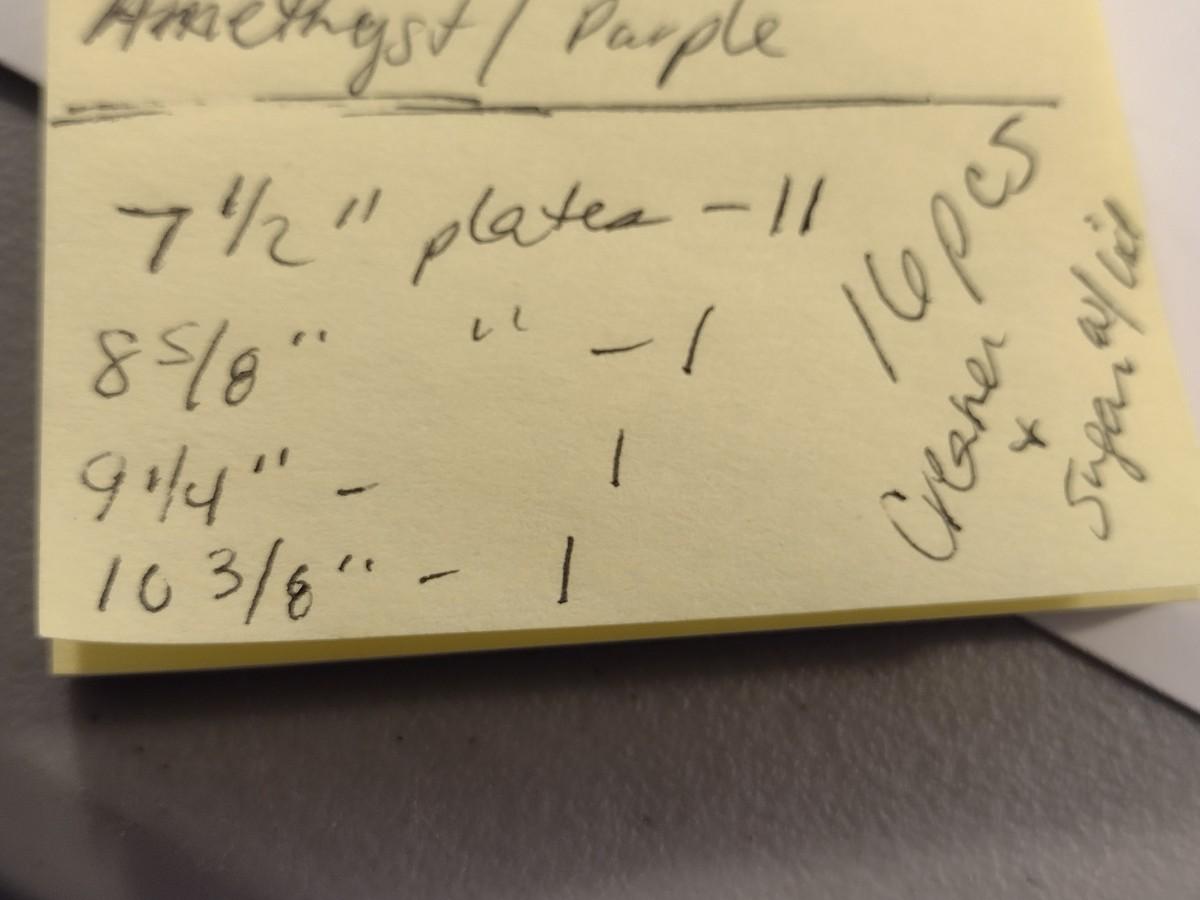 Amethyst / Purple
7 1/2 " plates - 11
8 5/8 " " - 1
9 1/4 " - 1
10 3/8 " - 1
16 pcs
Creamer &
Sugar w/ lid